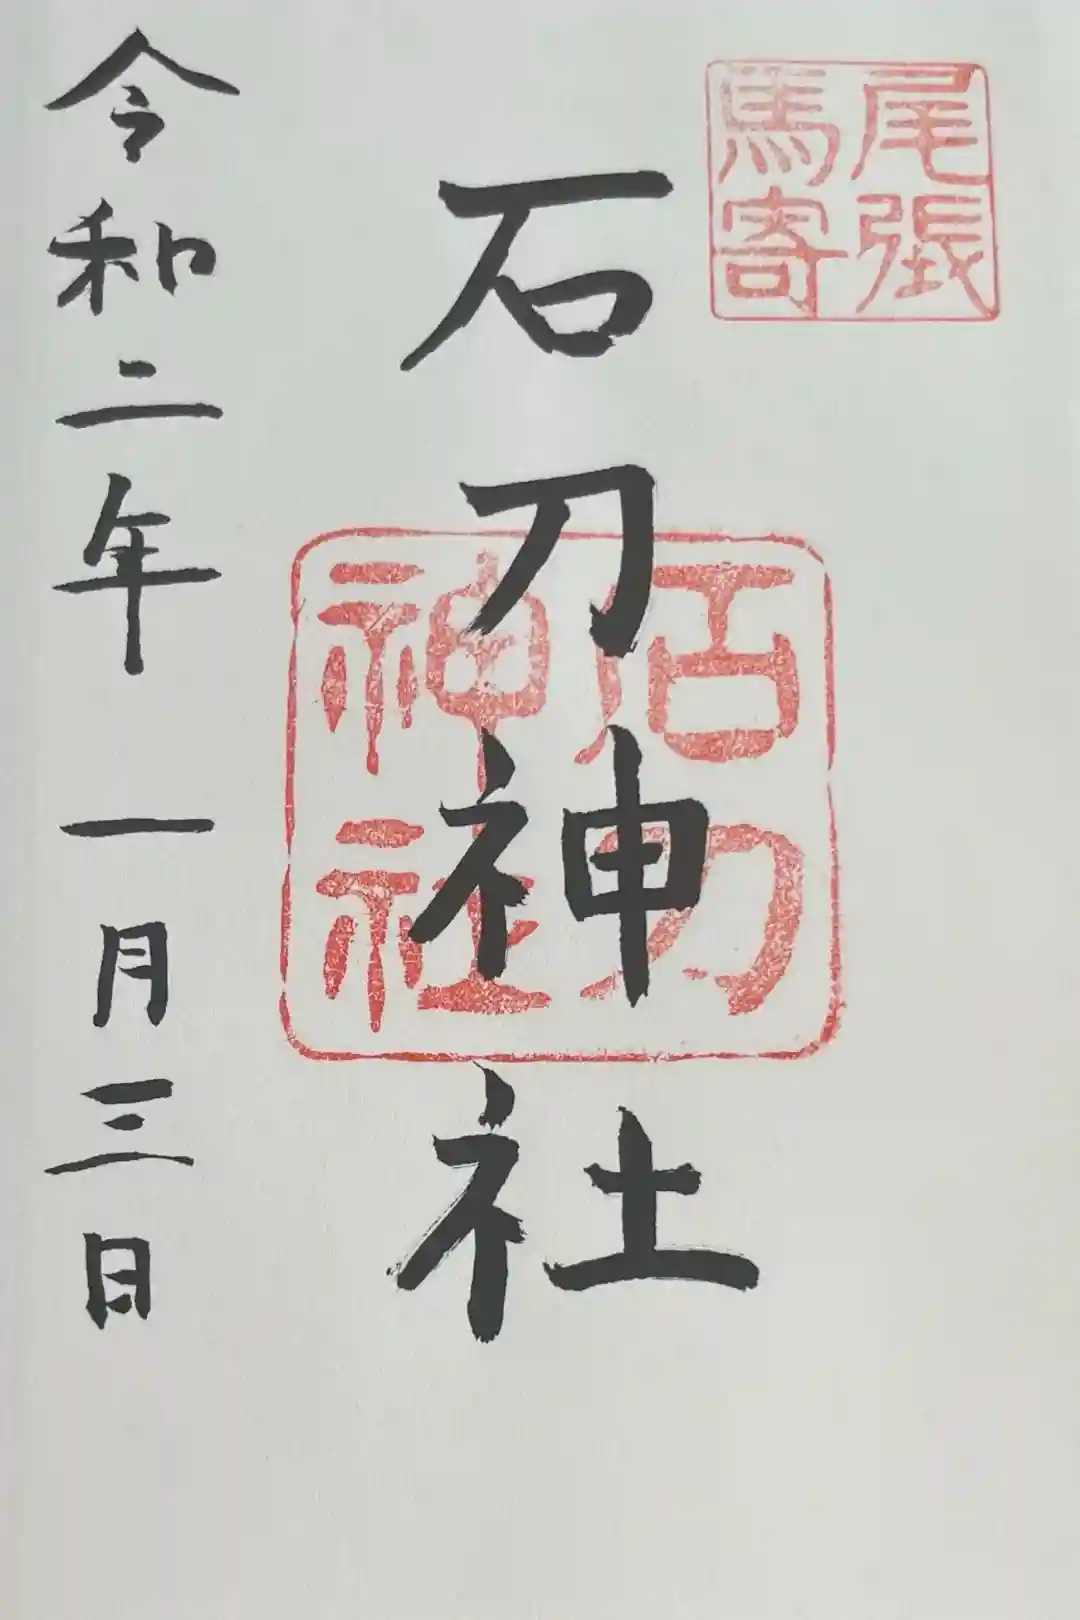 尾張
馬寄
石刀神社
石刀
神社
令和二年 一月三日